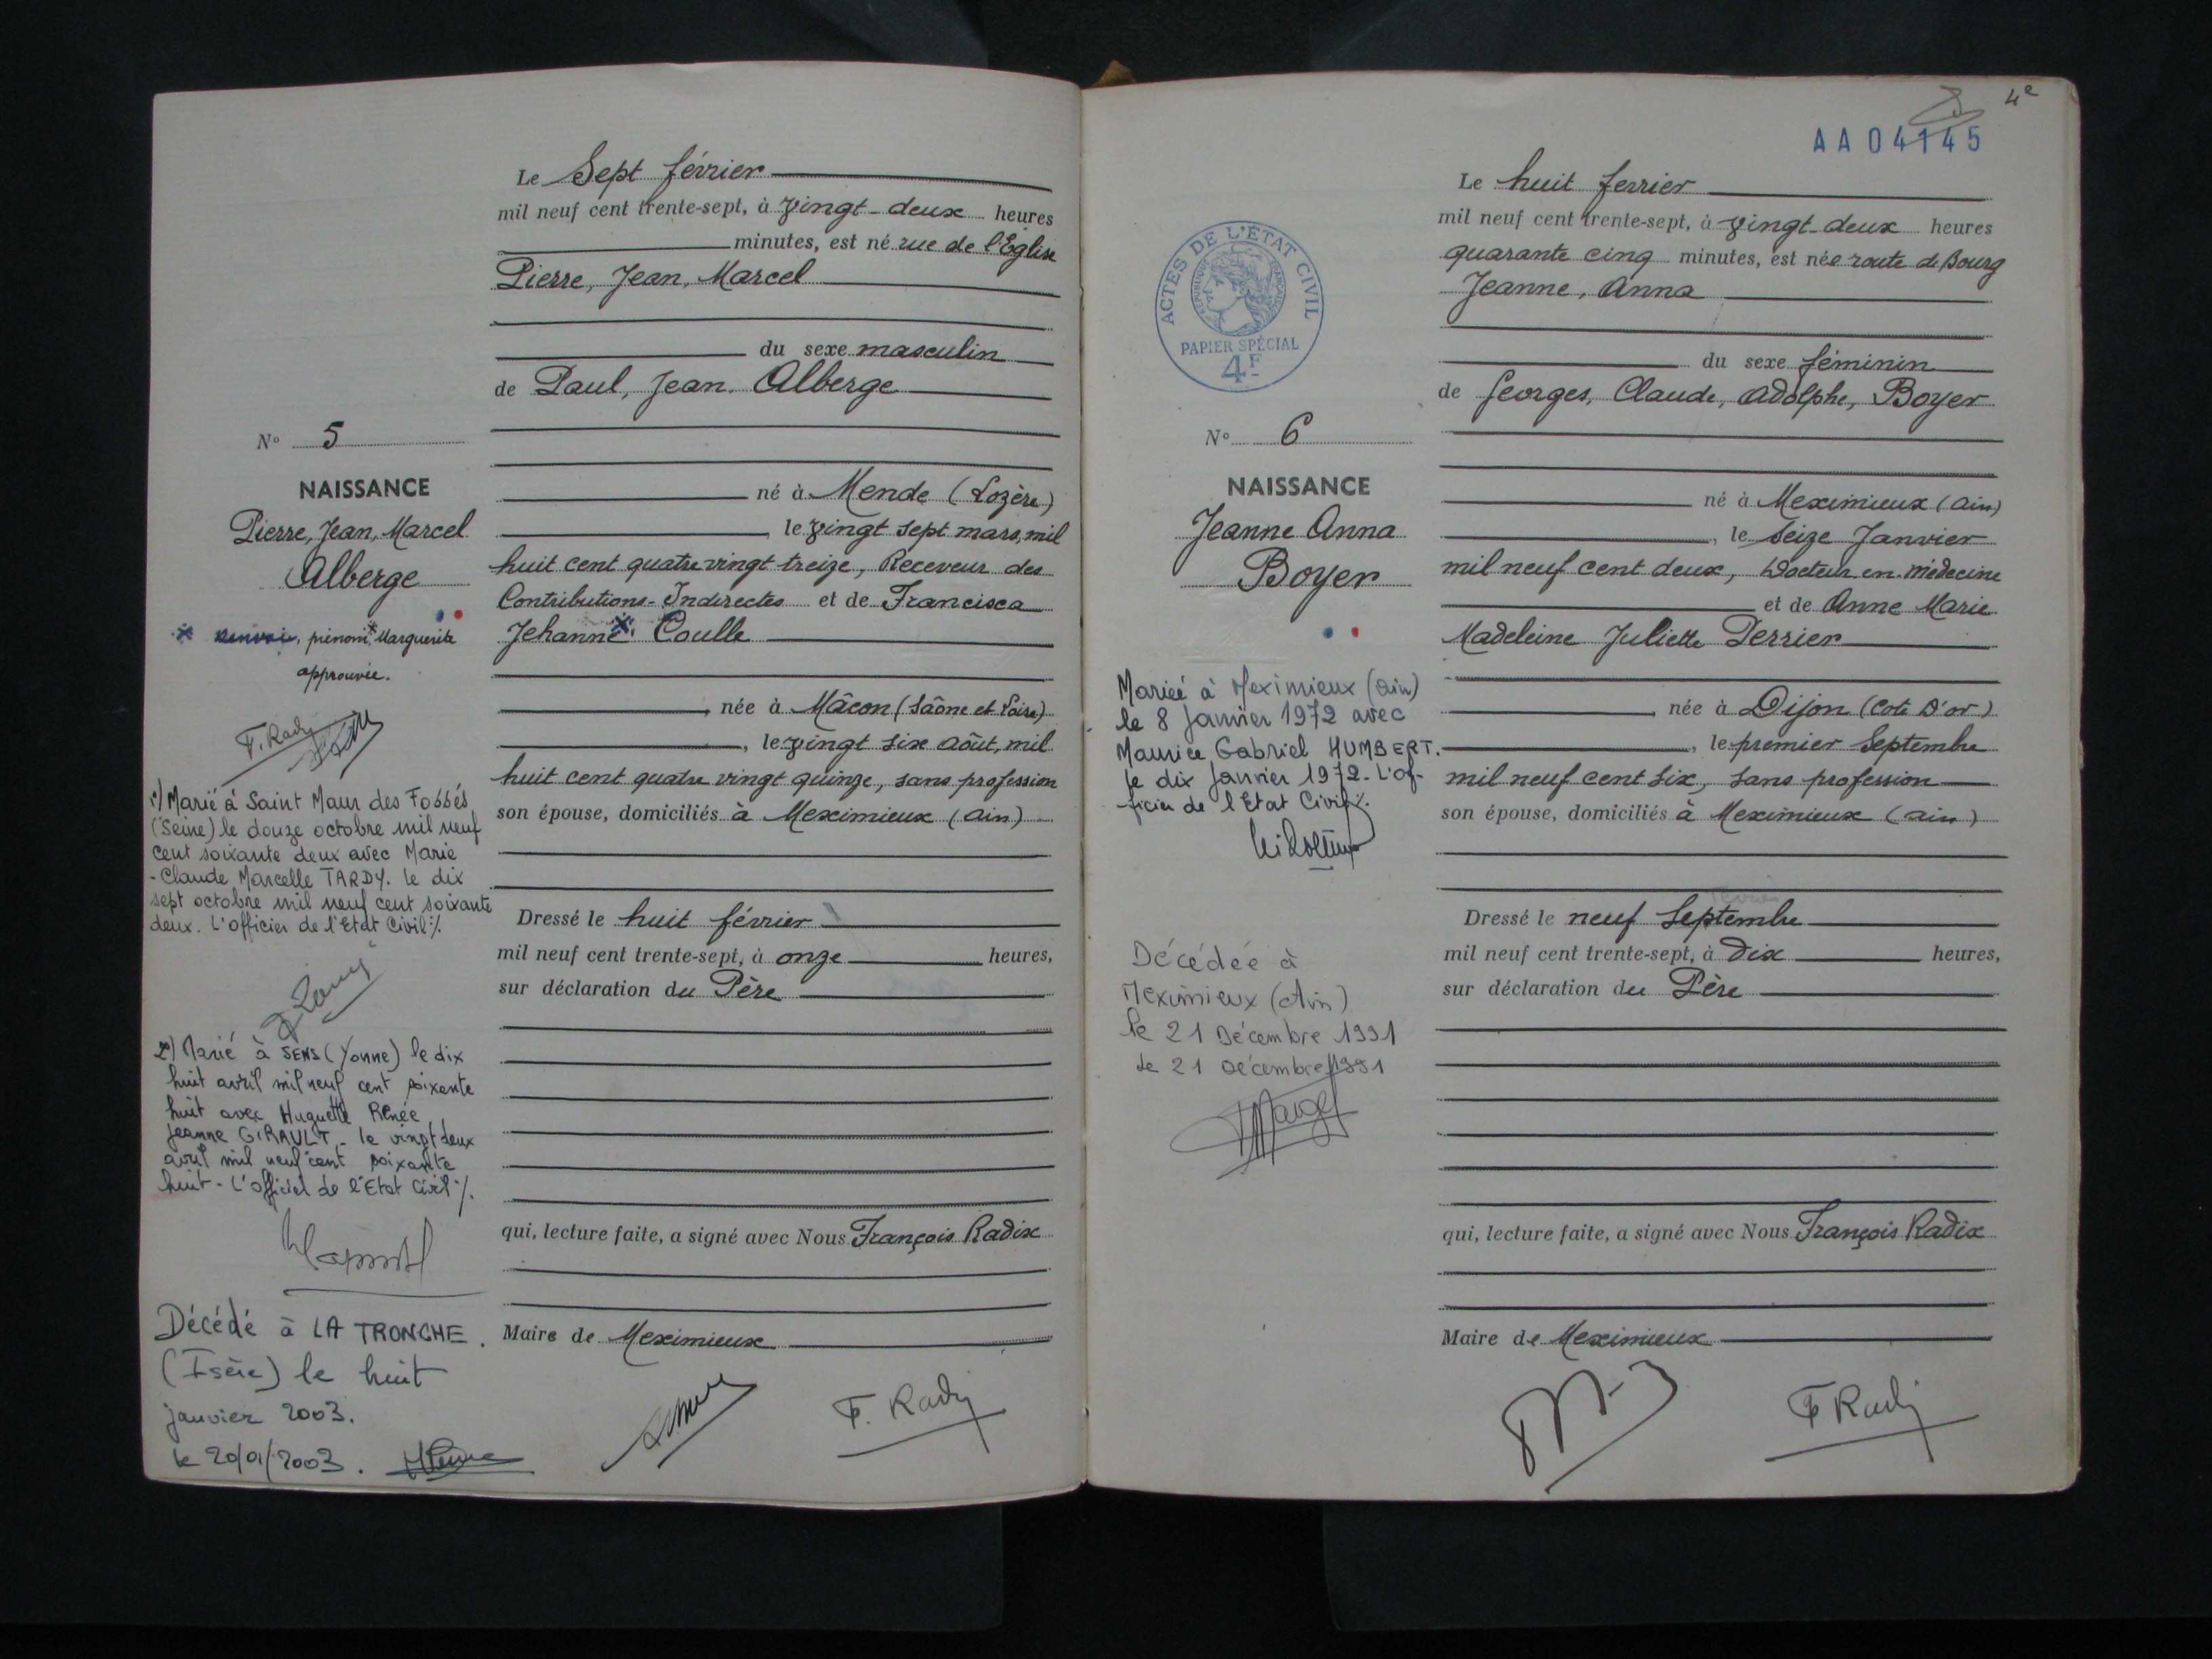 Le Sept février
mil neuf cent trente-sept, à vingt-deux heures
minutes, est né rue de l'Eglise
Pierre, Jean, Marcel
du sexe masculin
de Paul, Jean, Alberge
né à Mende (Lozère)
le vingt sept mars, mil
huit cent quatre vingt treize, Receveur des
Contributions-Indirectes et de Francisca
Jehanne * Coulle
née à Mâcon (Saône et Loire)
, le vingt six août, mil
huit cent quatre vingt quinze, sans profession
son épouse, domiciliés à Meximieux (Ain)
Dressé le huit février
mil neuf cent trente-sept, à onze heures,
sur déclaration du Père
qui, lecture faite, a signé avec Nous François Radix
Maire de Meximieux
F. Radix
No 5
NAISSANCE
Pierre, Jean, Marcel
Alberge
* renvoi, prénom * Marguerite
approuvée.
F. Radix
1°) Marié à Saint Maur des Fossés
(Seine) le douze octobre mil neuf
cent soixante deux avec Marie
-Claude Marcelle TARDY. Le dix
sept octobre mil neuf cent soixante
deux. L'officier de l'Etat Civil ./.
2°) Marié à SENS (Yonne) le dix
huit avril mil neuf cent soixante
huit avec Huguette Renée
Jeanne GIRAULT - le vingt deux
avril mil neuf cent soixante
huit - L'officier de l'Etat Civil ./.
Décédé à LA TRONCHE.
(Isère) le huit
janvier 2003.
le 20/01/2003.
4e
AA04145
Le huit fevrier
mil neuf cent trente-sept, à vingt-deux heures
quarante cinq minutes, est née route de Bourg
Jeanne, Anna
du sexe féminin
de Georges, Claude, Adolphe, Boyer
né à Meximieux (Ain)
, le Seize Janvier
mil neuf cent deux, Docteur en médecine
et de Anne Marie
Madeleine Juliette Perrier
née à Dijon (Cote D'or)
, le premier Septembre
mil neuf cent six, sans profession
son épouse, domiciliés à Meximieux (Ain)
février
Dressé le neuf Septembre
mil neuf cent trente-sept, à Dix heures,
sur déclaration du Père
qui, lecture faite, a signé avec Nous François Radix
Maire de Meximieux
F Radix
ACTES DE L'ÉTAT CIVIL
RÉPUBLIQUE FRANÇAISE
PAPIER SPÉCIAL
4F
No 6
NAISSANCE
Jeanne Anna
Boyer
Mariée à Meximieux (Ain)
le 8 Janvier 1972 avec
Maurice Gabriel HUMBERT.
le dix Janvier 1972 - L'of-
ficier de l'Etat Civil ./.
Décédée à
Meximieux (Ain)
le 21 Décembre 1991
Le 21 Décembre 1991